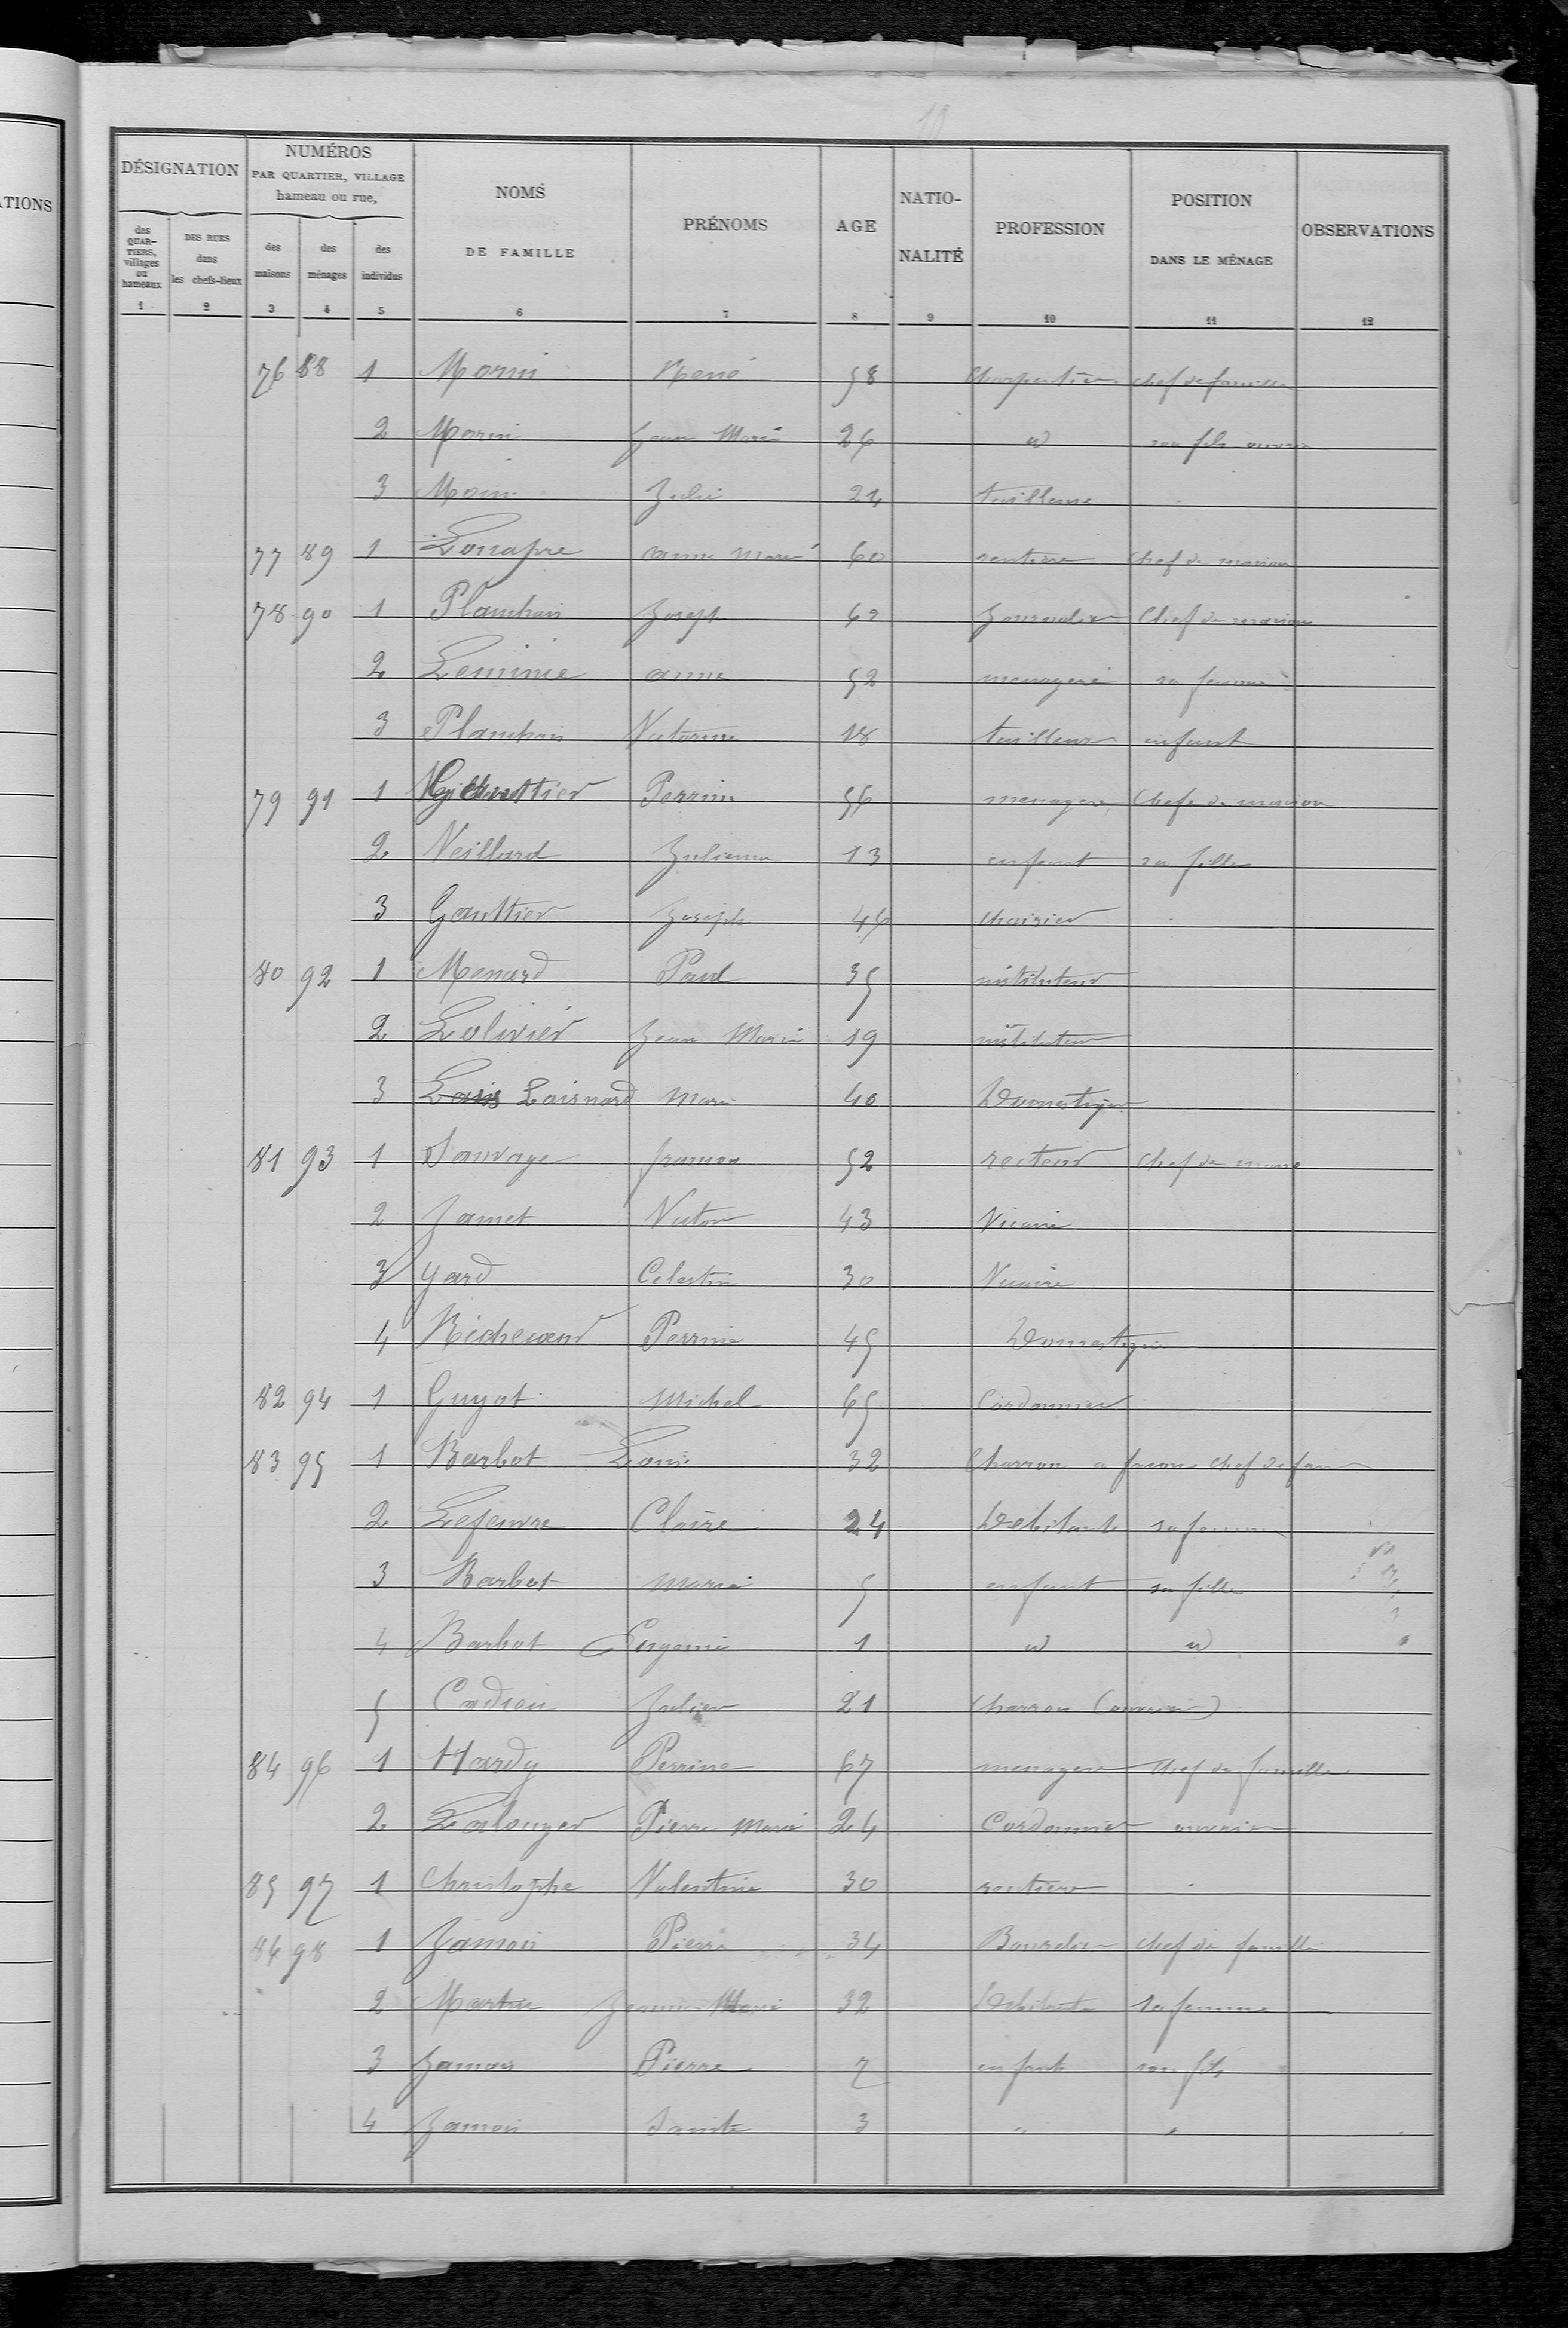 TIONS
10
DÉSIGNATION
NUMÉROS
PAR QUARTIER, VILLAGE
hameau ou rue,
des QUARTIERS, villages ou hameaux
DES RUES dans les chefs-lieux
des maisons
des ménages
des individus
NOMS DE FAMILLE
PRÉNOMS
AGE
NATIONALITÉ
PROFESSION
POSITION DANS LE MÉNAGE
OBSERVATIONS
1 2 3 4 5 6 7 8 9 10 11 12
76 88 1 Morin René 58 Charpentier chef de famille
2 Morin Jean Marie 26 id son fils ouvrier
3 Morin Julie 24 tailleuse
77 89 1 anne marie 60 rentiere chef de maison
78 90 1 Planchais Joseph 62 Journalier Chef de maison
2 anne 52 menagere sa femme
3 Planchais Victorine 18 tailleuse enfant
79 91 1 Gauttier Perrine 56 menagere Chefe de maison
2 Veillard Julienne 13 enfant sa fille
3 Gauttier Joseph 46
80 92 1 Menard Paul 35 instituteur
2 Lolivier Jean Marie 19 instituteur
3 Laisnard Marie 40 Domestique
81 93 1 Sauvage francois 52 recteur chef de
2 Jamet Victor 43 Vicaire
3 Yard Celestin 30 Vicaire
4 Richeoeur Perrine 45 Domestique
82 94 1 Guyot Michel 65 Cordonnier
83 95 1 Barbot Louis 32 Charron a facon chef de fam
2 Lefeuvre Claire 24 Debitante sa femme
3 Barbot Marie 5 enfant sa fille
4 Barbot Eugenie 1 id id
5 Cadieu Julien 21 Charron (ouvrier)
84 96 1 Hardy Perrine 67 menagere chef de famille
2 Pierre Marie 24 Cordonnier ouvrier
85 97 1 Christophe Valentine 30 rentiere
86 98 1 Jamois Pierre 34 Bourrelier chef de famille
2 Martin Jeanne Marie 32 Debitante sa femme
3 Jamois Pierre 7 enfant son fils
4 Jamois Sainte 3 " "